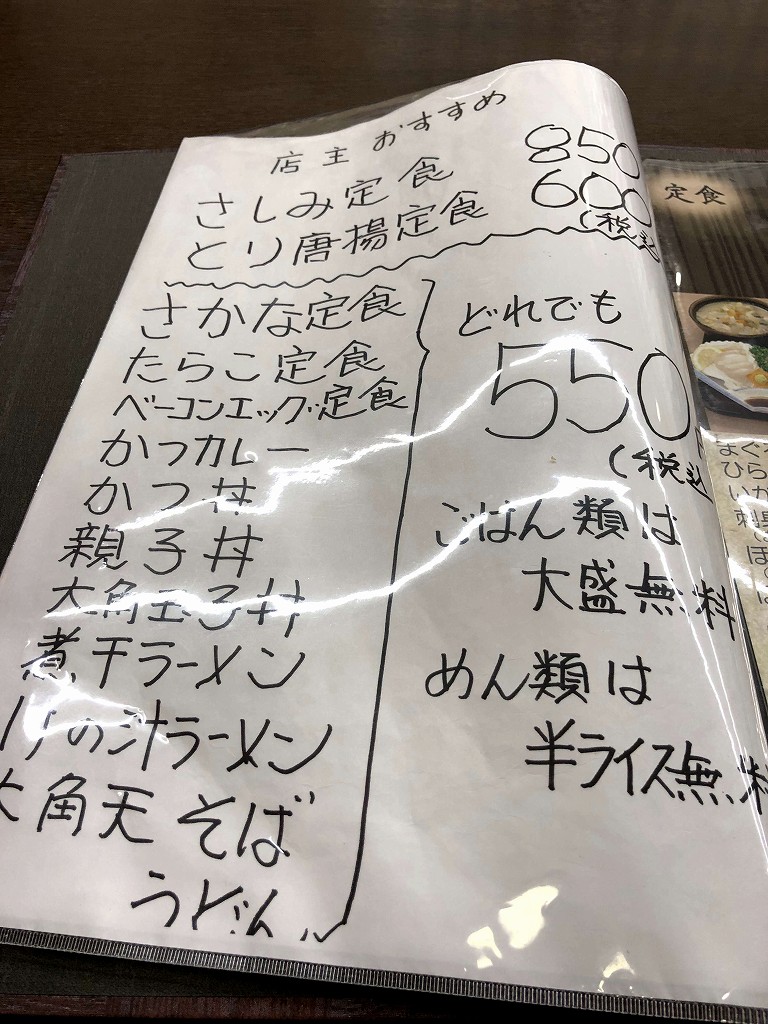 店主 おすすめ
さしみ定食 850
とり唐揚定食 600
(税込
さかな定食
たらこ定食
ベーコンエッグ定食
かつカレー
かつ丼
親子丼
大角玉子丼
煮干ラーメン
けの汁ラーメン
大角天そば
うどん
どれでも
550
(税込
ごはん類は
大盛無料
めん類は
半ライス無料
定食
まぐ
ひら
いか
刺身
ほ